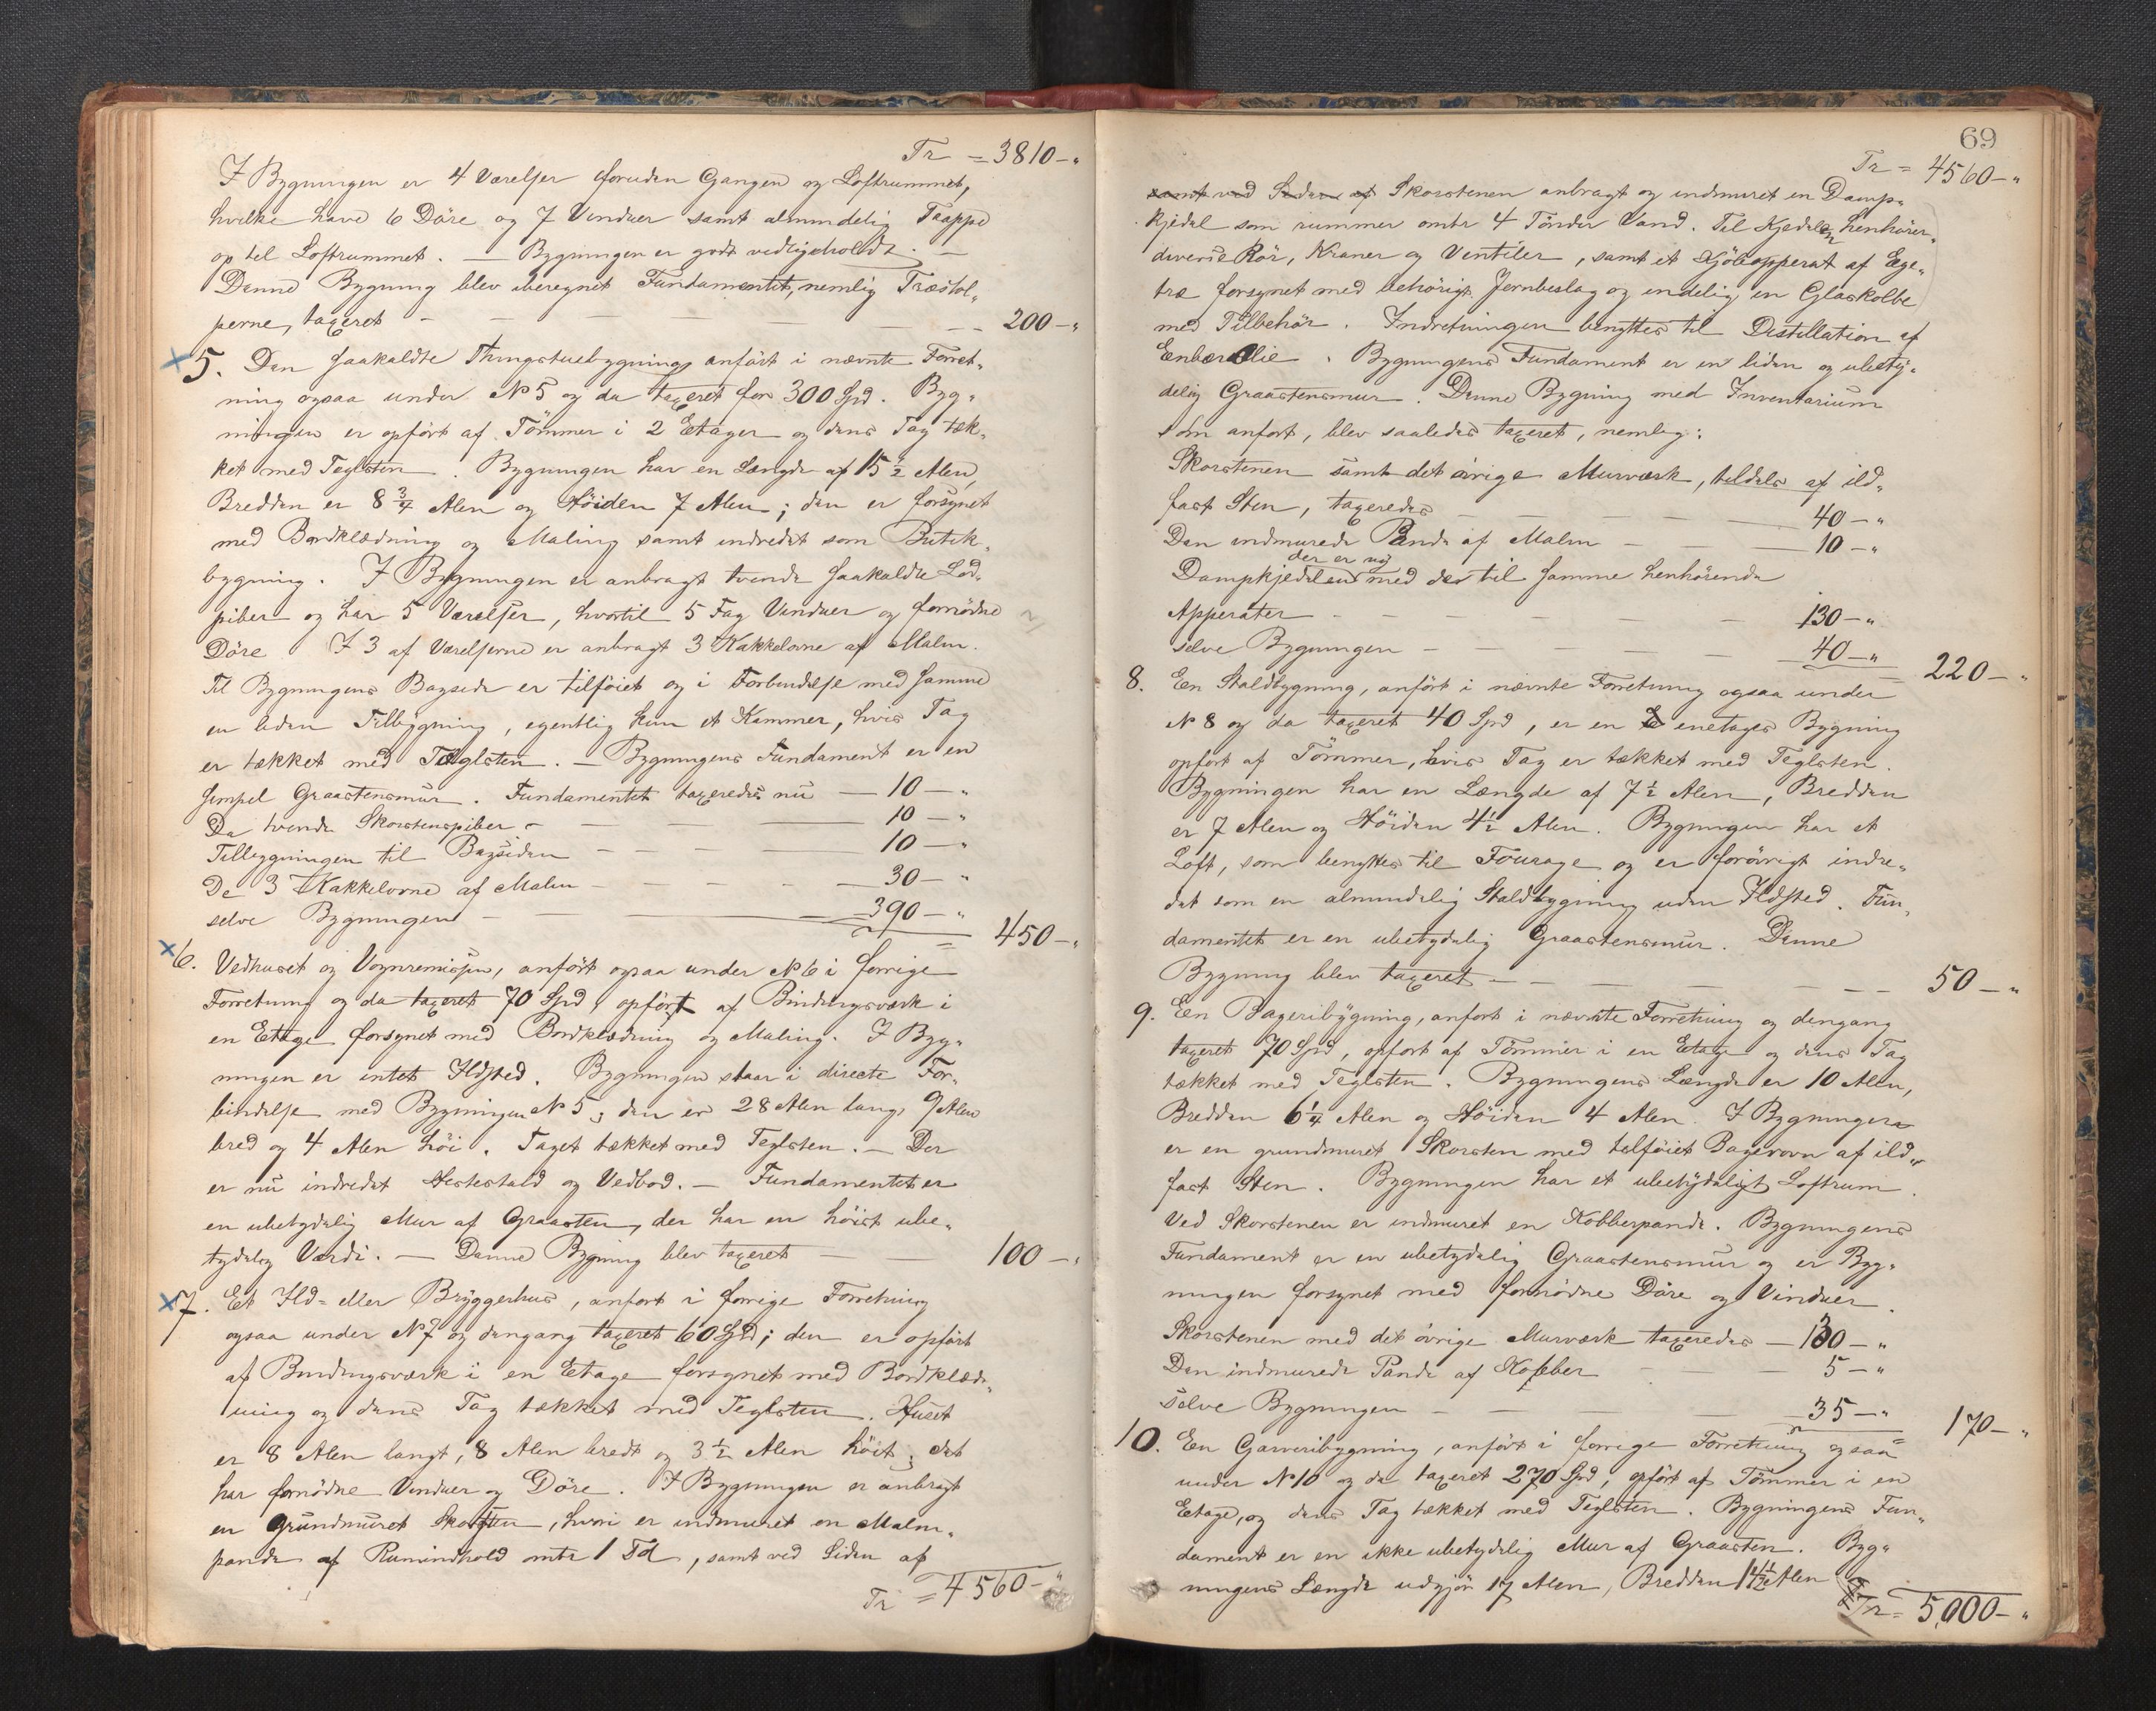 Tr = 3810 — "
I Bygningen er 4 Værelser foruden Gangen og Loftrummet,
hvilke have 6 Döre og 7 Vinduer samt almindelig Trappe
op til Loftrummet. — Bygningen er godt vedligeholdt. —
Denne Bygning blev iberegnet Fundamentet, nemlig Træstol-
perne, taxeret — — — — — 200 — "
5. Den saakaldte Thingstuebygning, anfört i nævnte Forret-
ning ogsaa under No 5 og da taxeret for 300 Spd. Byg-
ningen er opfört af Tömmer i 2 Etager og dens Tag tæk-
ket med Teglsten. Bygningen har en Længde af 15 ½ Alen,
Bredden er 8 ¾ Alen og Höiden 7 Alen; den er forsynet
med Bordklædning og Maling samt indredet som Butik-
bygning. I Bygningen er anbragt tvende saakaldte Lod-
piber og har 5 Værelser, hvortil 5 Fag Vinduer og fornödne
Döre. I 3 af Værelserne er anbragt 3 Kakkelovne af Malm.
Til Bygningens Bagside er tilföiet og i Forbindelse med samme
en liden Tilbygning, egentlig kun et Kammer, hvis Tag
er tækket med Teglsten. — Bygningens Fundament er en
simpel Graastensmur. Fundamentet taxeredes nu — 10 — "
De tvende Skorstenspiber — — — 10 — "
Tilbygningen til Bagsiden — — — 10 — "
De 3 Kakkelovne af Malm — — — 30 — "
selve Bygningen — — — 390 — "
= 450 — "
6. Vedhuset og Vognremissen, anfört ogsaa under No 6 i forrige
Forretning og da taxeret 70 Spd, opfört af Bindingsværk i
en Etage forsynet med Bordklædning og Maling. I Byg-
ningen er intet Ildsted. Bygningen staar i directe For-
bindelse med Bygningen No 5; den er 28 Alen lang, 9 Alen
bred og 4 Alen höi. Taget tækket med Teglsten. — Der
er nu indredet Hestestald og Vedbod. — Fundamentet er
en ubetydelig Mur af Graasten, der har en höist ube-
tydelig Værdi. — Denne Bygning blev taxeret — — 100 — "
7. Et Ild- eller Bryggerhus, anfört i forrige Forretning
ogsaa under No 7 og dengang taxeret 60 Spd; den er opfört
af Bindingsværk i en Etage forsynet med Bordklæd-
ning og dens Tag tækket med Teglsten. Huset
er 8 Alen langt, 8 Alen bredt og 3 ½ Alen höit; det
har fornödne Vinduer og Döre. I Bygningen er anbragt
en grundmuret Skorsten, hvori er indmuret en Malm-
pande af Rumindhold omtr 1 Td, samt ved Siden af
Tr = 4560 — "
69
Tr = 4560 — "
samt ved Siden af Skorstenen anbragt og indmuret en Damp-
kjedel som rummer omtr 4 Tönder Vand. Til Kjedelen henhörer
diverse Rör, Kraner og Ventiler, samt et Kjöleapperat af Ege-
træ forsynet med behörigt Jernbeslag og endelig en Glaskolbe
med Tilbehör. Indretningen benyttes til Distillation af
Enbærolie. Bygningens Fundament er en liden og ubety-
delig Graastensmur. Denne Bygning med Inventarium
som anfört, blev saaledes taxeret, nemlig:
Skorstenen samt det övrige Murværk, tildels af ild-
fast Sten, taxeredes — — — 40 — "
Den indmurede Pande af Malm — — 10 — "
der er ny
Dampkjedelen med des til samme henhörende
Apperater — — — — 130 — "
selve Bygningen — — — — 40 — "
= 220 — "
8. En Staldbygning, anfört i nævnte Forretning ogsaa under
No 8 og da taxeret 40 Spd, er en enetages Bygning
opfört af Tömmer, hvis Tag er tækket med Teglsten.
Bygningen har en Længde af 7 ½ Alen, Bredden
er 7 Alen og Höiden 4 ½ Alen. Bygningen har et
Loft, som benyttes til Fourage og er forövrigt indre-
det som en almindelig Staldbygning uden Ildsted. Fun-
damentet er en ubetydelig Graastensmur. Denne
Bygning blev taxeret — — — — 50 — "
9. En Bageribygning, anfört i nævnte Forretning og dengang
taxeret 70 Spd, opfört af Tömmer i en Etage og dens Tag
tækket med Teglsten. Bygningens Længde er 10 Alen,
Bredden 6 ¼ Alen og Höiden 4 Alen. I Bygningen
er en grundmuret Skorsten med tilföiet Bagerovn af ild-
fast Sten. Bygningen har et ubetydeligt Loftrum.
Ved Skorstenen er indmuret en Kobberpande. Bygningens
Fundament er en ubetydelig Graastensmur og er Byg-
ningen forsynet med fornödne Döre og Vinduer.
Skorstenen med det övrige Murværk taxeredes — 130 — "
Den indmurede Pande af Kobber — — 5 — "
selve Bygningen — — — 35 — "
= 170 — "
10. En Garveribygning, anfört i forrige Forretning ogsaa
under No 10 og da taxeret 270 Spd, opfört af Tömmer i en
Etage, og dens Tag tækket med Teglsten. Bygningens Fun-
dament er en ikke ubetydelig Mur af Graasten. Byg-
ningens Længde udgjör 17 Alen, Bredden 14 ½ Alen
Tr = 5,000 — "